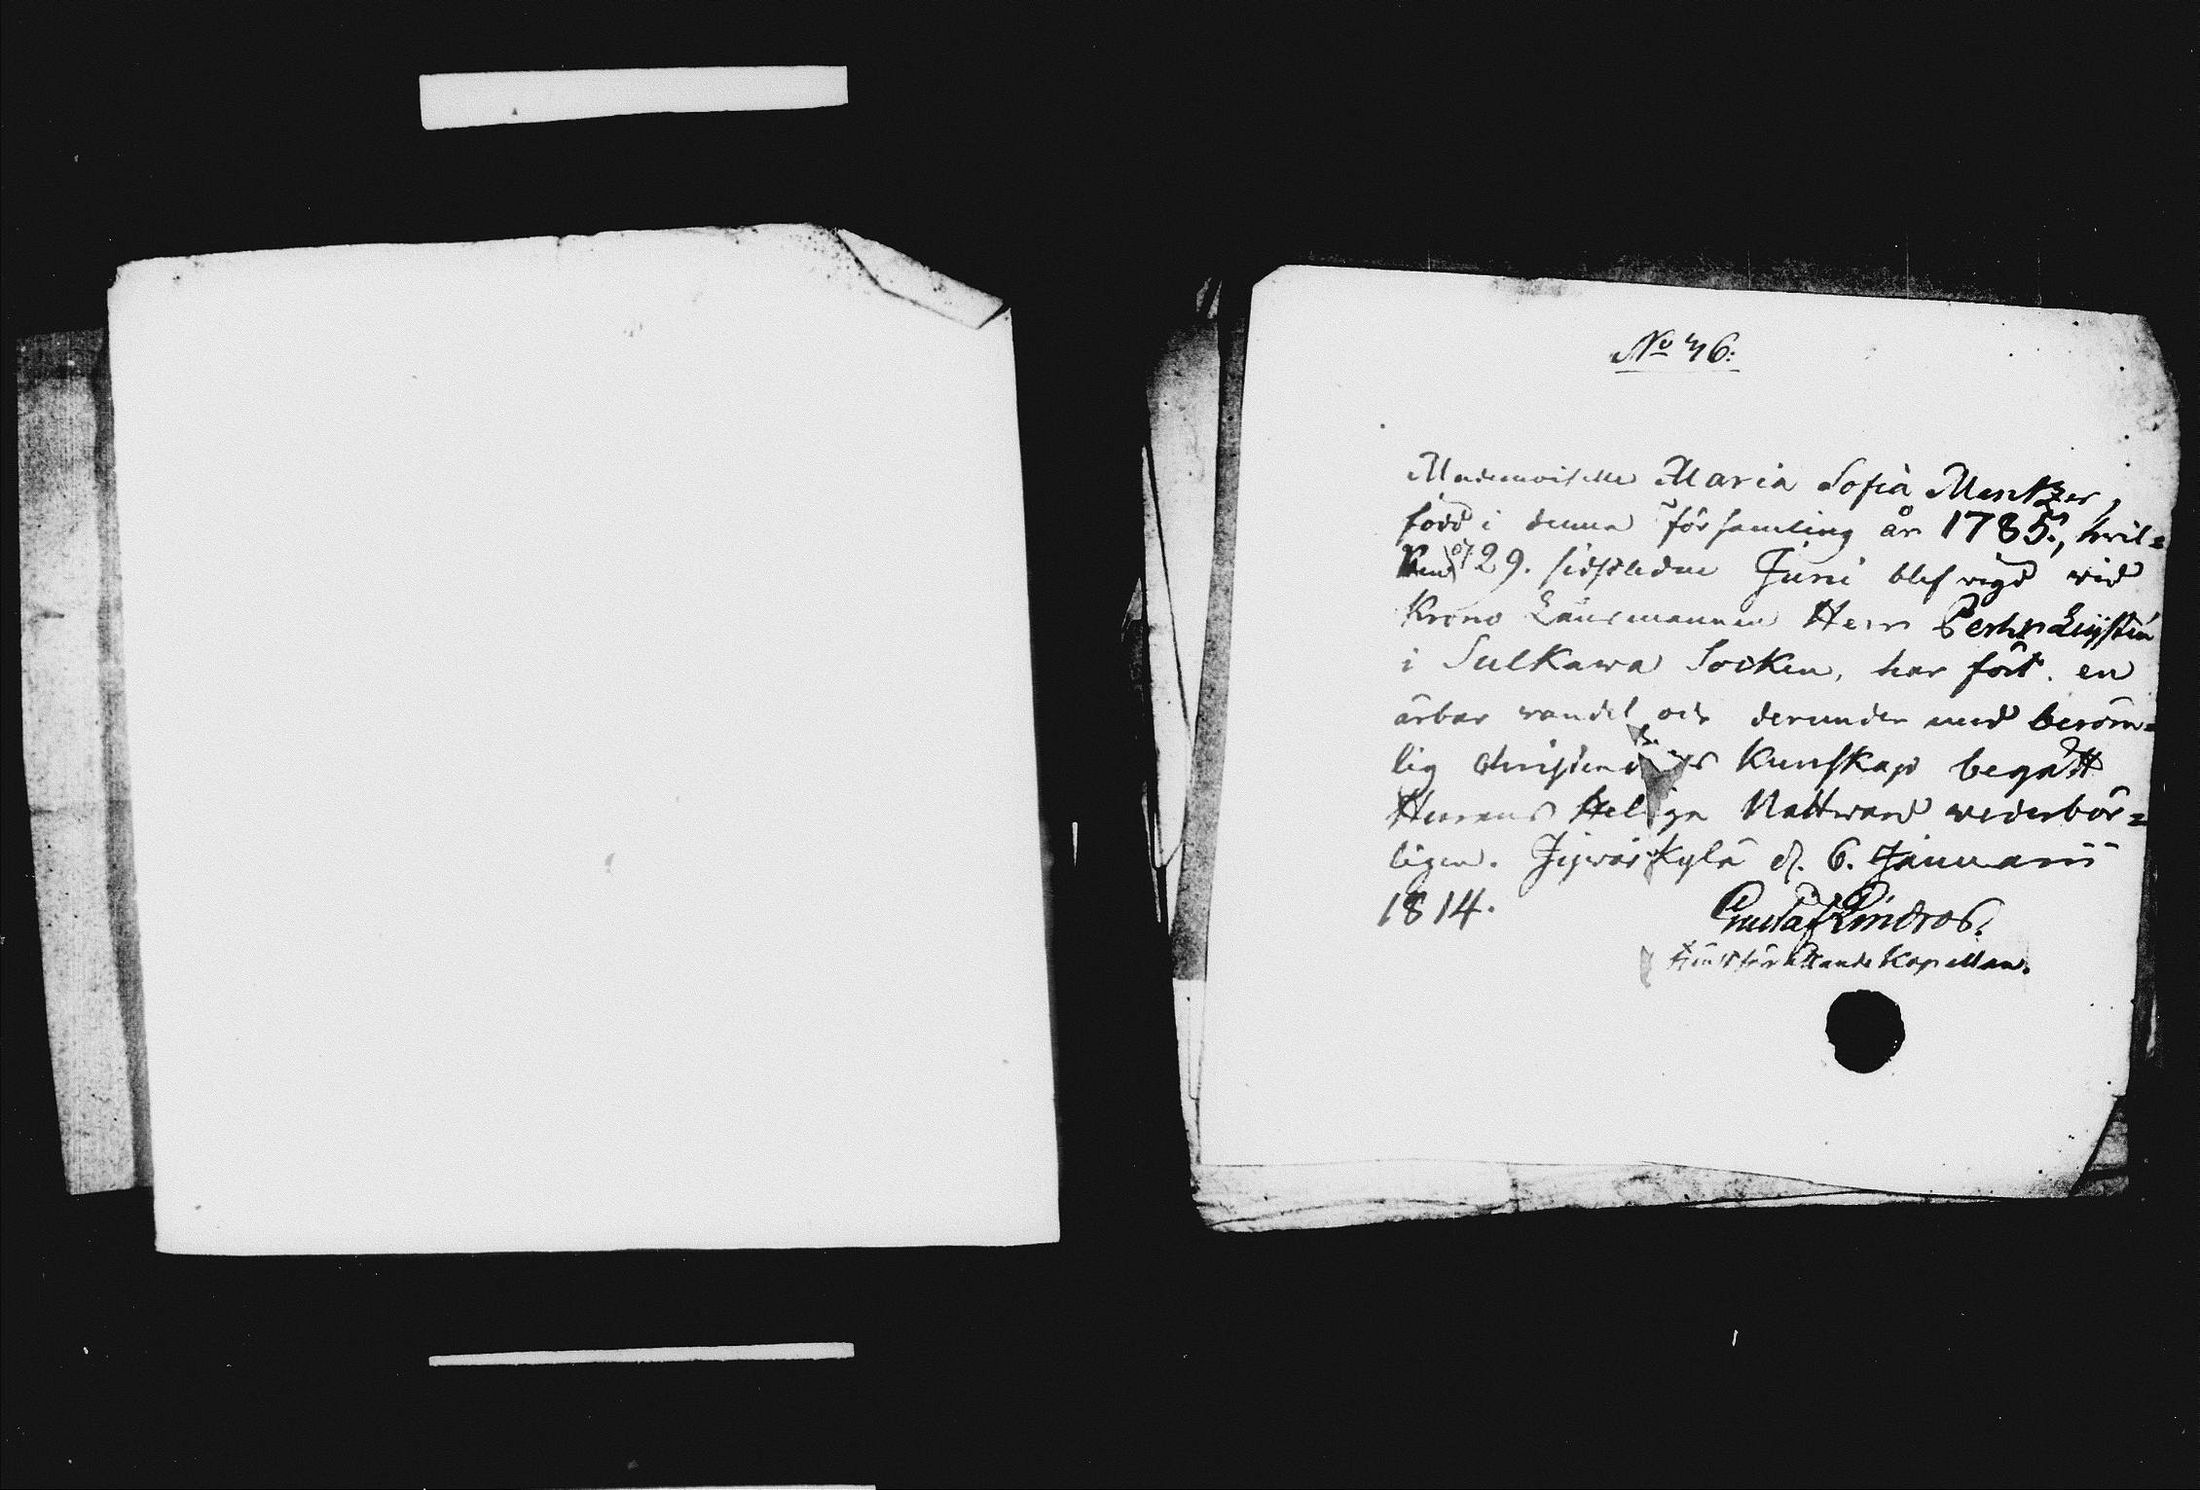 No 46:
Mademoiselle Maria Sofia Mentzer,
född i denna församling år 1785, hvil=
ken d. 29. sistledne Juni blef vigd wid
Krono Länsmannen Herr Pehr
i Sulkawa Socken, har fört en
ärbar wandel och derunder med beröm=
lig Christendoms Kunskap begått
Herrans Helga Nattward wederbör=
ligen. Jywäskylä d. 6. Januarii
1814. Gustaf Lindros.
Tjenstförrättande Kapellan.